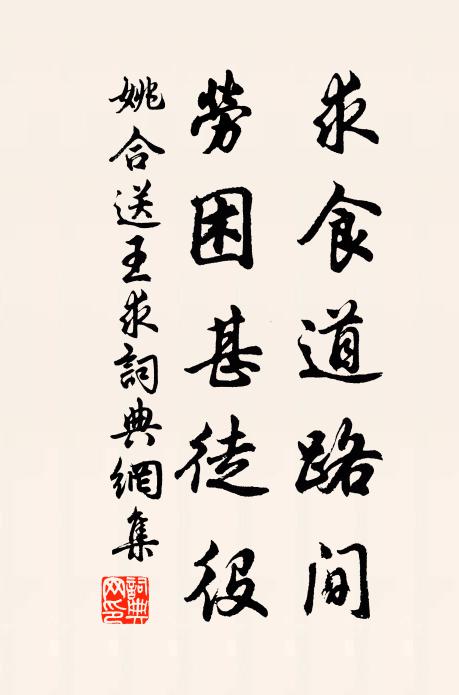 求食道路間
勞困甚徒役
姚合送王求詞典網集
詞典网印